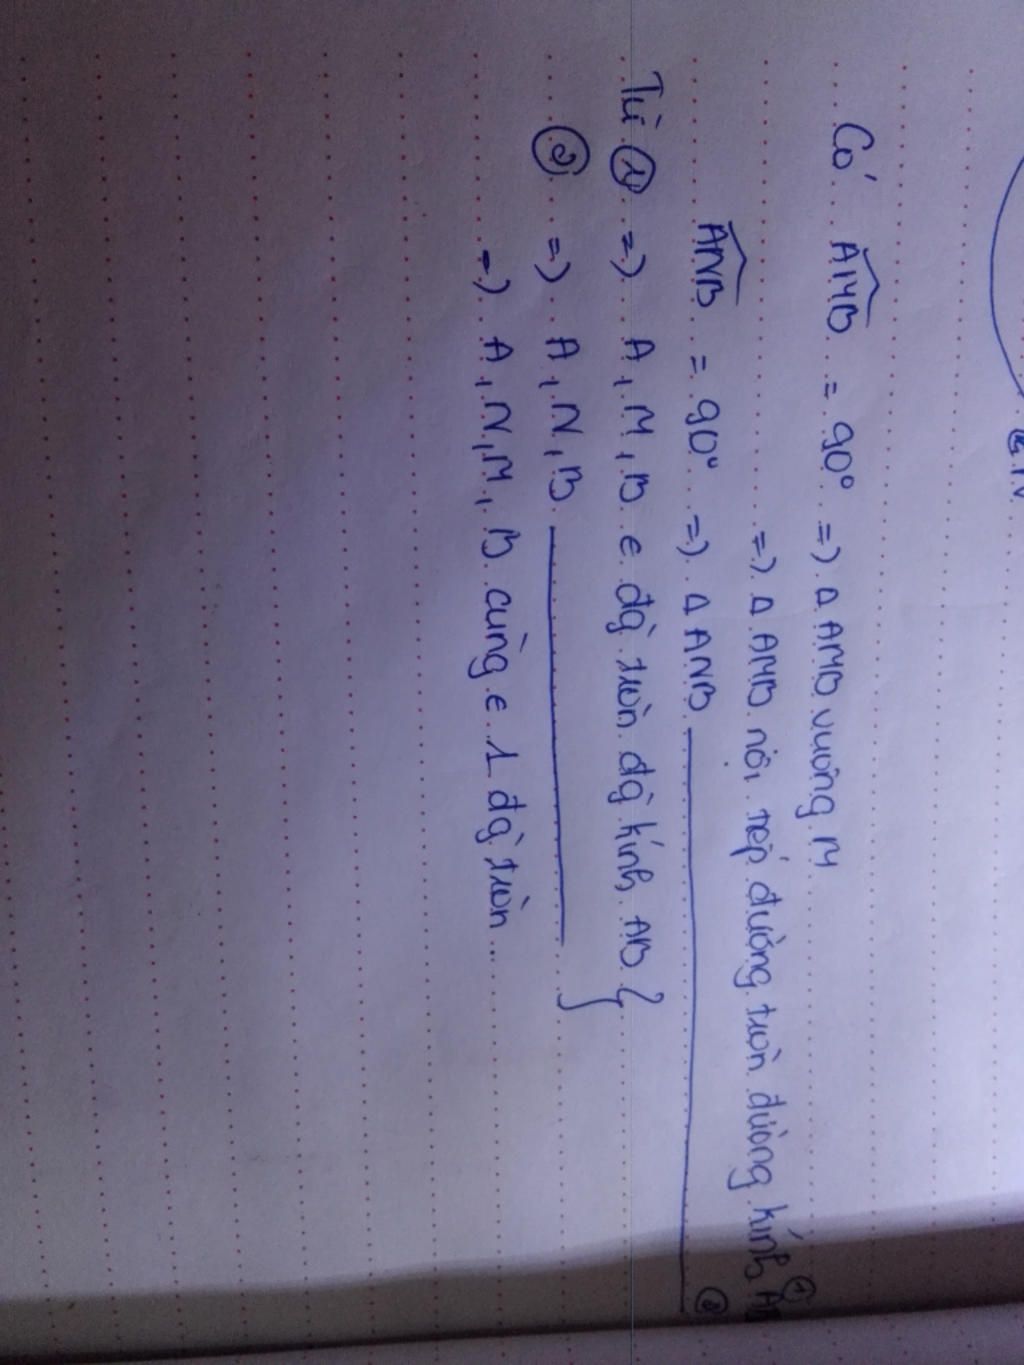 Có AMB = 90° => Δ AMB vuông M
=> Δ AMB nội tiếp đường tròn đường kính AB ①
ANB = 90° => Δ ANB ——— ②
Từ ① => A, M, B ∈ đg̀ tròn đg̀ kính AB }
② => A, N, B ———
=> A, N, M, B cùng ∈ 1 đg̀ tròn